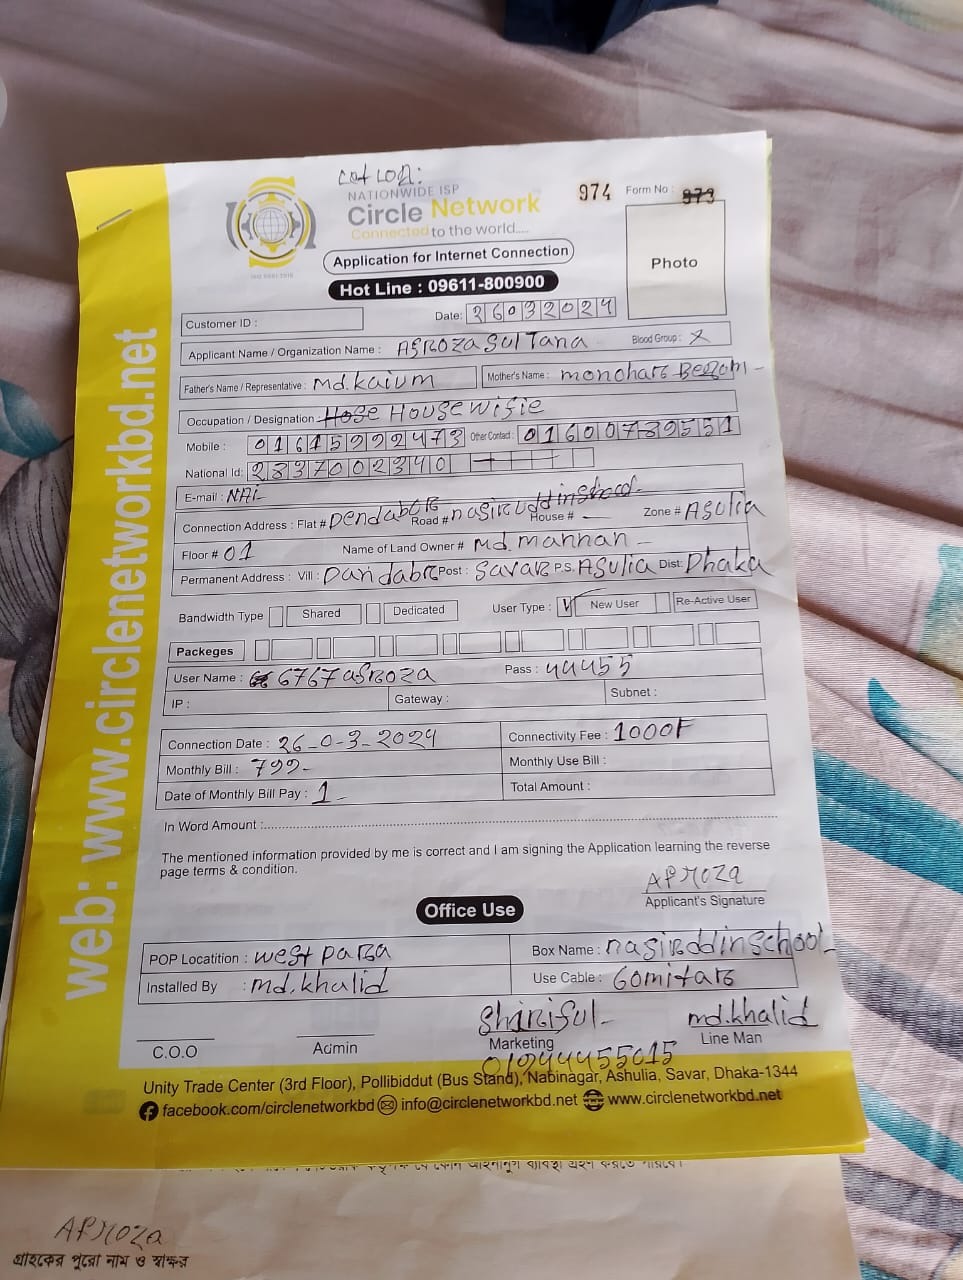 NATIONWIDE ISP
Circle Network
Connected to the world....
974 Form No : 973
Application for Internet Connection
Photo
Hot Line : 09611-800900
Customer ID :
Date: 26032024
Applicant Name / Organization Name : ASROZA SULTANA Blood Group: X
Father's Name / Representative : Md. Kaium Mother's Name : monohara Begom -
Occupation / Designation : House Housewisie
Mobile : 01615992473 Other Contact : 01600789551
National Id: 2837002340
E-mail : NAI
Connection Address : Flat # Dendabor Road # nasiruddinshcool House # — Zone # ASulia
Floor # 01 Name of Land Owner # Md. mannan —
Permanent Address : Vill : Dandabor Post : Savar P.S. ASulia Dist: Dhaka
Bandwidth Type Shared Dedicated User Type : New User Re-Active User
Packeges
User Name : 6767asroza Pass : 44455
IP : Gateway : Subnet :
Connection Date : 26-0-3-2024 Connectivity Fee : 1000৳
Monthly Bill : 799- Monthly Use Bill :
Date of Monthly Bill Pay : 1- Total Amount :
In Word Amount :
The mentioned information provided by me is correct and I am signing the Application learning the reverse
page terms & condition.
AFROZA
Applicant's Signature
Office Use
POP Locatition : west para Box Name : nasirddinschool-
Installed By : md.khalid Use Cable : 60mitar
Shariful- md.khalid
C.O.O Admin Marketing Line Man
01944455015
Unity Trade Center (3rd Floor), Pollibiddut (Bus Stand), Nabinagar, Ashulia, Savar, Dhaka-1344
facebook.com/circlenetworkbd info@circlenetworkbd.net www.circlenetworkbd.net
web: www.circlenetworkbd.net
AFROZA
গ্রাহকের পুরো নাম ও স্বাক্ষর